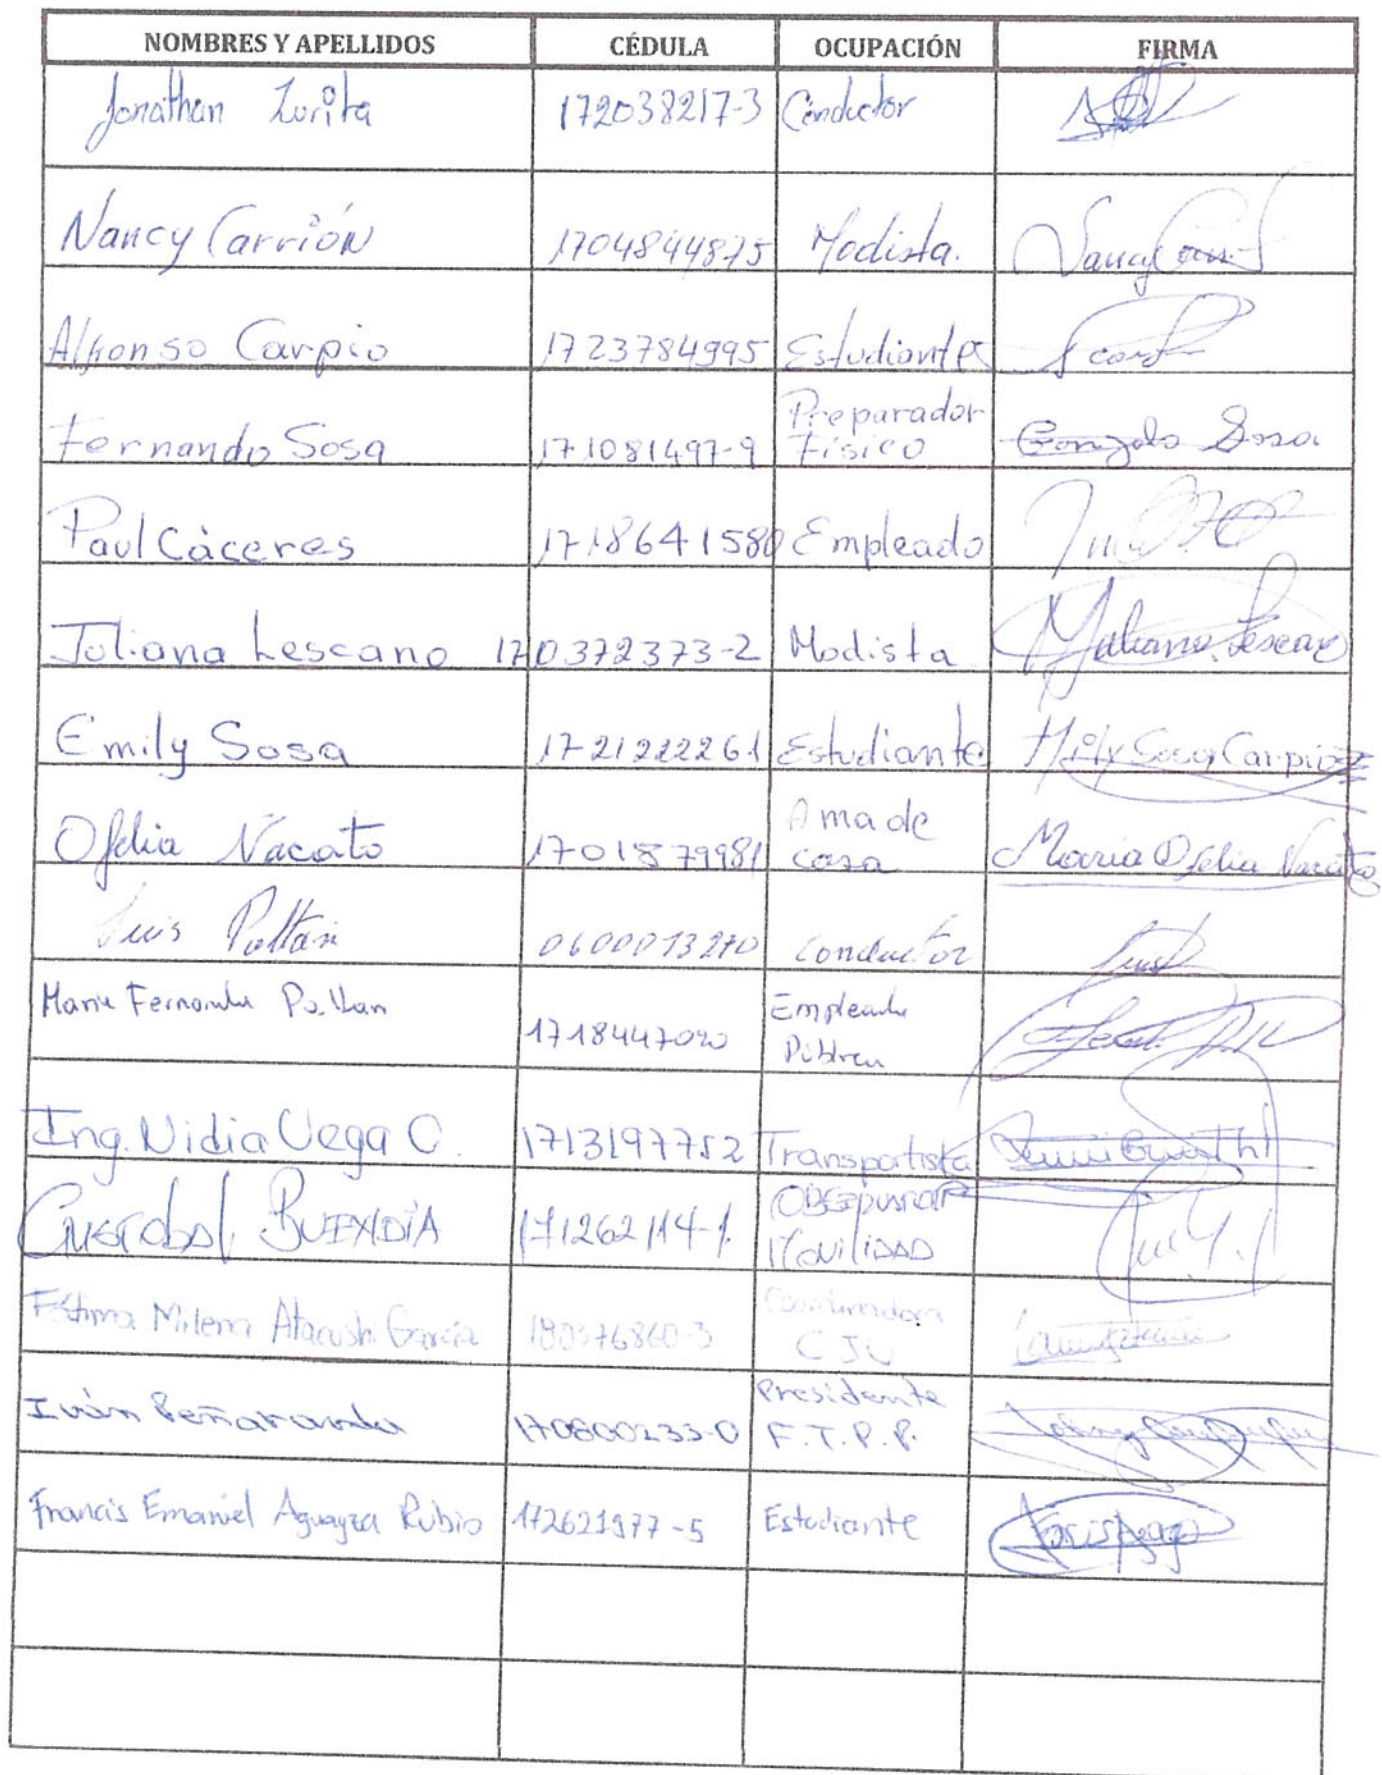 NOMBRES Y APELLIDOS CÉDULA OCUPACIÓN FIRMA
Jonathan Zurita 172038217-3 Conductor
Nancy Carrión 1704844875 Modista.
Alfonso Carpio 1723784995 Estudiante
Preparador
Fernando Sosa 171081497-9 Físico Gonzalo Sosa
Paul Cáceres 1718641580 Empleado
Juliana Lescano 170372373-2 Modista
Emily Sosa 1721222261 Estudiante Mily Sosa Carpio
Ama de
Ofelia Nacato 1701879981 casa Maria Ofelia Nacato
Luis Paltán 0600013270 Conductor
Maria Fernanda Paltan Empleada
1718447020 Pública
Ing. Nidia Vega C. 1713197752 Transportista
Cristobal BUENDÍA 171262114-1 MOVILIDAD
Fátima Milena Atacushi García 180376860-3 Coordinadora
CJU
Presidente
Iván Peñaranda 170800233-0 F.T.P.P.
Francis Emanuel Aguayza Rubio 172621977-5 Estudiante